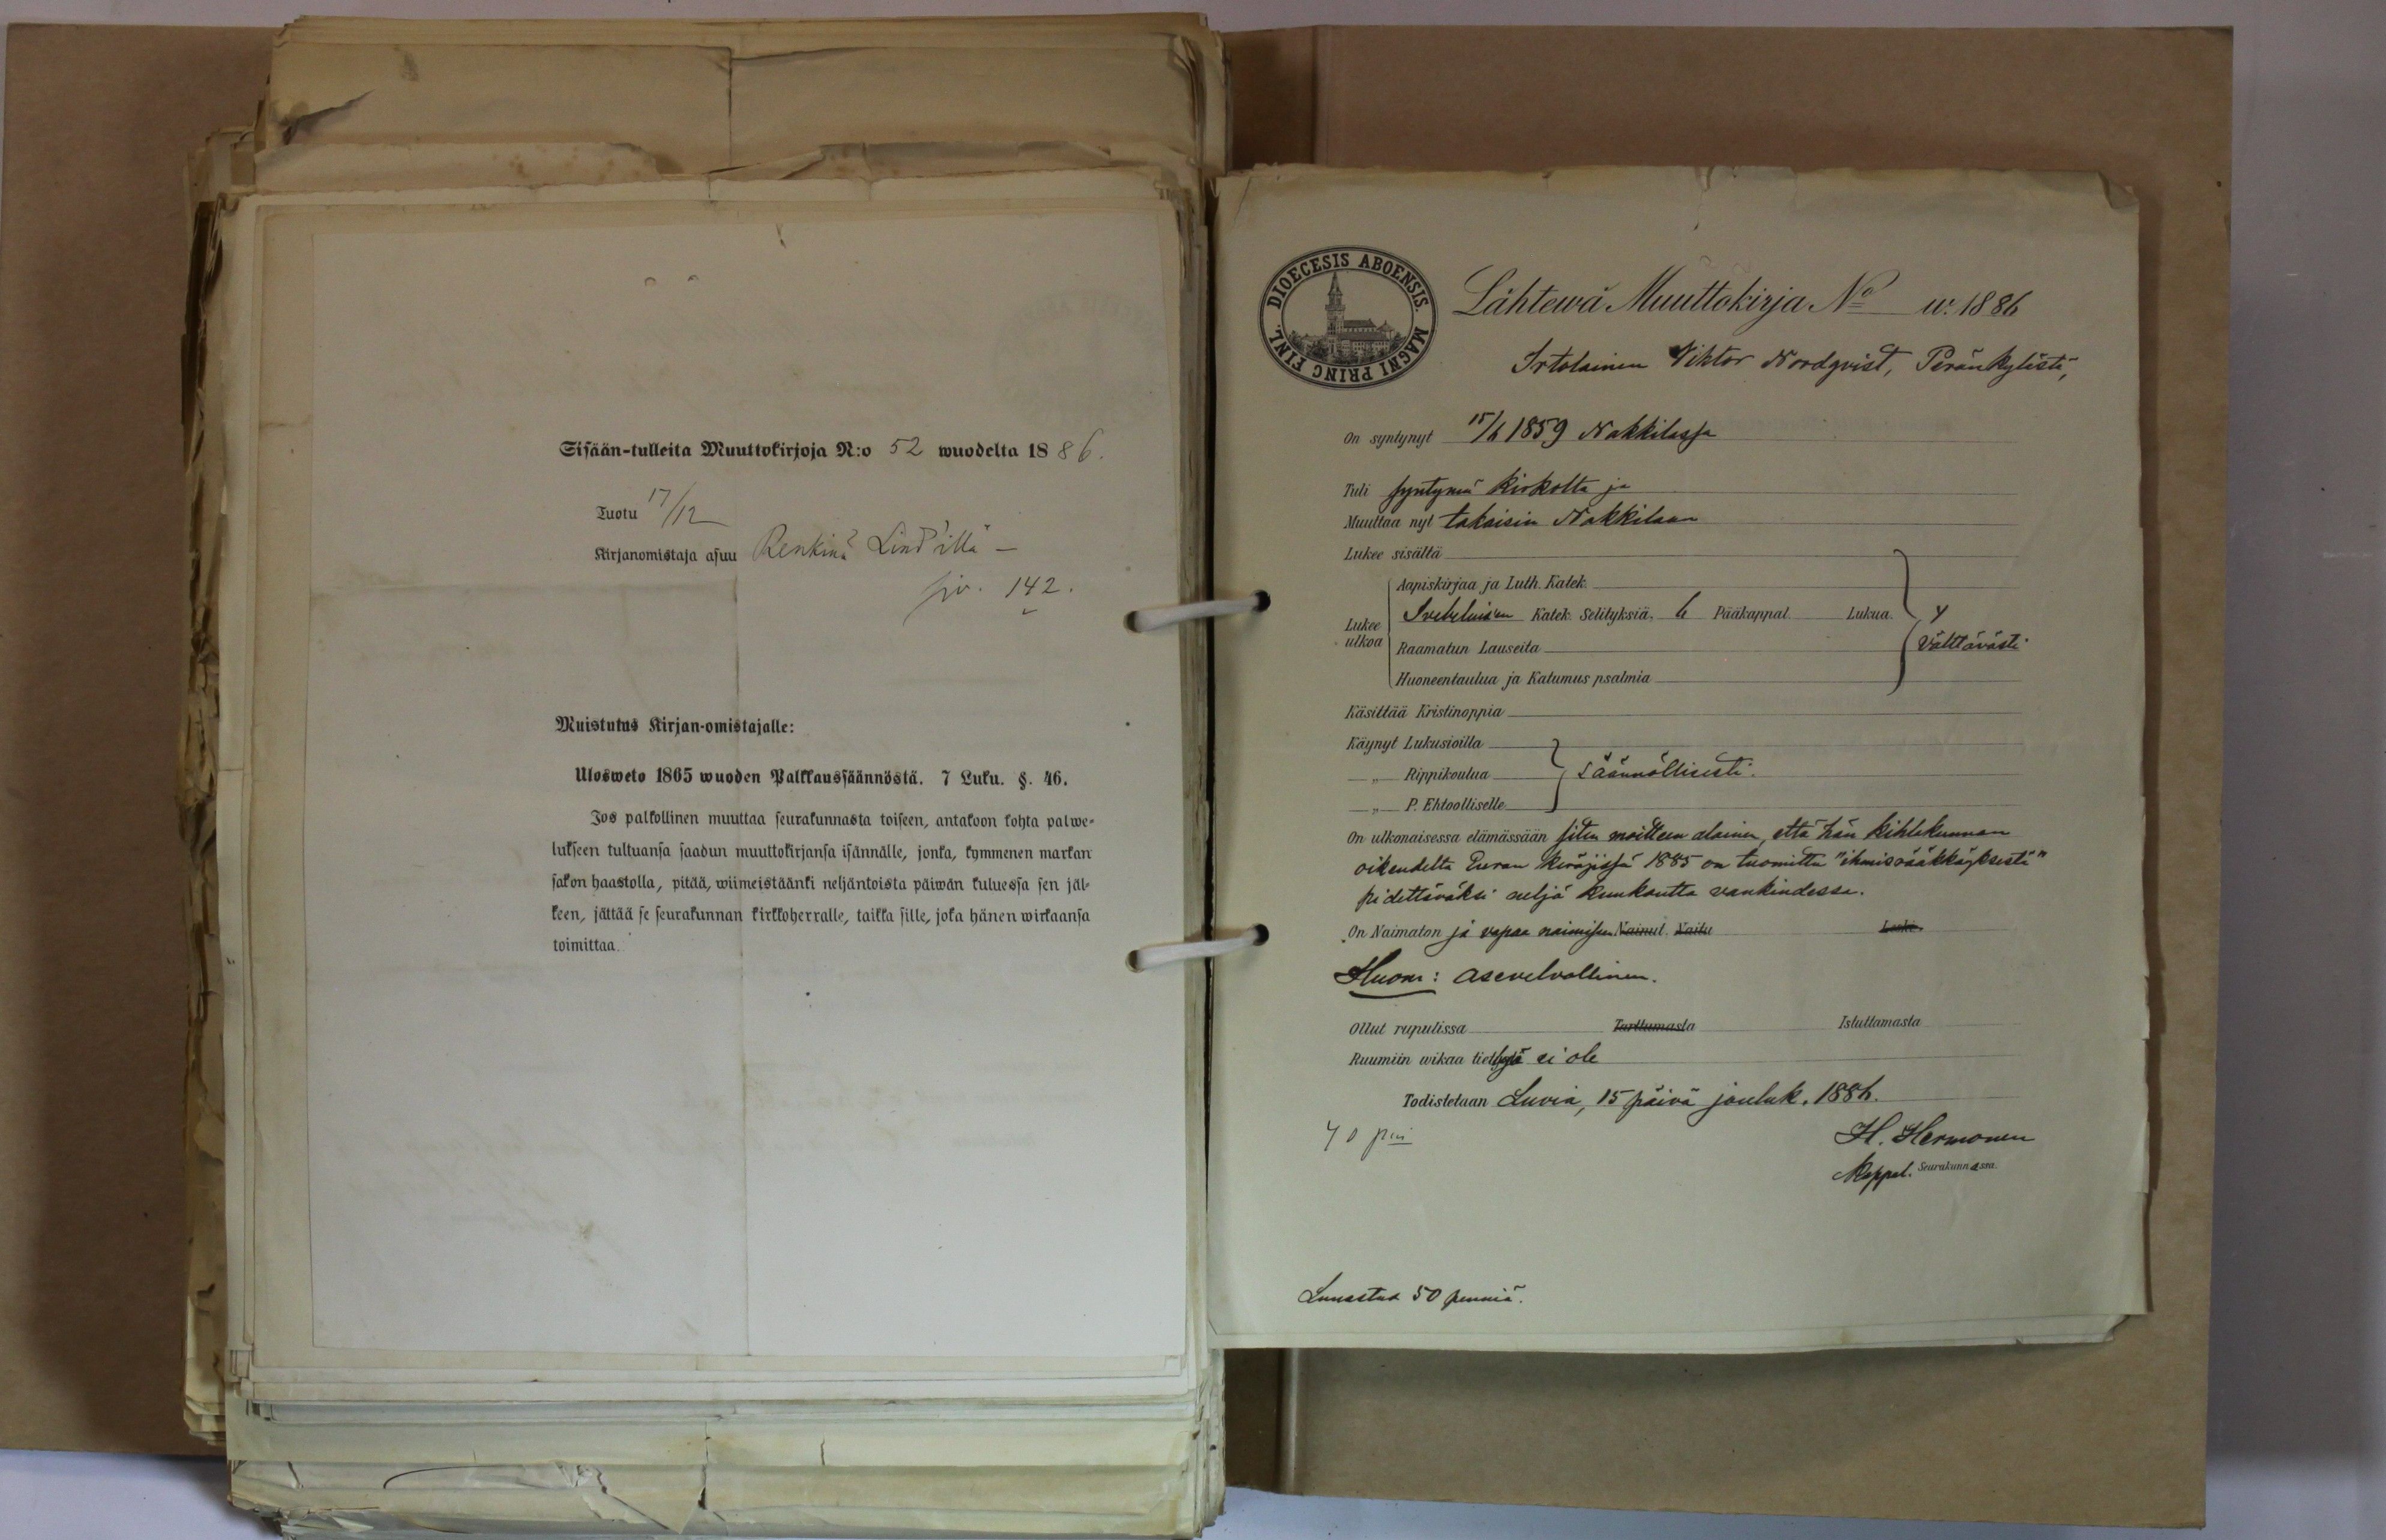 Sisään-tulleita Muuttokirjoja N:o 52 wuodelta 1886.
Tuotu 17/12
Kirjanomistaja asuu Renkinä Lind'illä –
siv. 142.
Muistutus Kirjan-omistajalle:
Ulosweto 1865 wuoden Palkkaussäännöstä. 7 Luku. §. 46.
Jos palkollinen muuttaa seurakunnasta toiseen, antakoon kohta palwe-
lukseen tultuansa saadun muuttokirjansa isännälle, jonka, kymmenen markan
sakon haastolla, pitää, wiimeistäänki neljäntoista päiwän kuluessa sen jäl-
keen, jättää se seurakunnan kirkkoherralle, taikka sille, joka hänen wirkaansa
toimittaa.
DIOECESIS ABOENSIS. MAGNI PRINC FINL.
Lähtewä Muuttokirja No w. 1886
Irtolainen Viktor Nordqvist, Peränkylästä,
On syntynyt 15/6 1859 Nakkilassa
Tuli syntymä kirkolta ja
Muuttaa nyt takaisin Nakkilaan
Lukee sisältä
Aapiskirjaa ja Luth. Katek.
Lukee ulkoa Svebeliuksen Katek. Selityksiä, 6 Pääkappal. Lukua.
Raamatun Lauseita Välttävästi
Huoneentaulua ja Katumus psalmia
Käsittää Kristinoppia
Käynyt Lukusioilla
—„— Rippikoulua Säännöllisesti.
—„— P. Ehtoolliselle
On ulkonaisessa elämässään siten moitteen alainen, että hän kihlakunnan
oikeudelta Euran käräjissä 1885 on tuomittu "ihmisrääkkäyksestä"
pidettäväksi neljä kuukautta vankeudessa.
On Naimaton ja vapaa naimisen Nainut. Naitu Leski.
Huom: asevelvollinen.
Ollut rupulissa Tarttumasta Istuttamasta
Ruumiin wikaa tiettyä ei ole
Todistetaan Luvia, 15 päivä jouluk. 1886.
40 pni
H. Hermonen
Kappal. Seurakunnassa.
Lunastus 50 penniä.